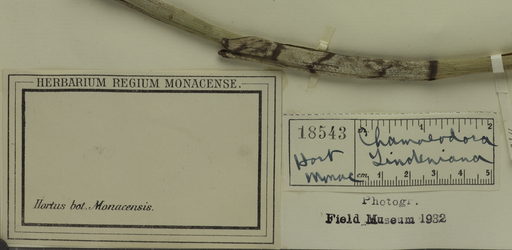 HERBARIUM REGIUM MONACENSE.
Hortus bot. Monacensis.
18543
Hort
Monac
Chamaedora
Lindeniana
1 2
cm. 1 2 3 4 5
Photogr.
Field Museum 1932